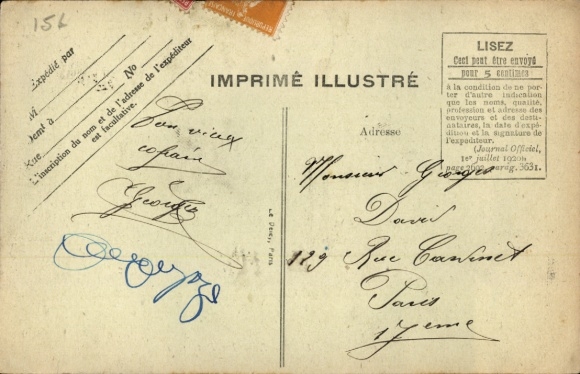 15L
Expédié par
M
Demt à No
Rue
L'inscription du nom et de l'adresse de l'expéditeur
est facultative.
IMPRIMÉ ILLUSTRÉ
LISEZ
Ceci peut être envoyé
pour 5 centimes
à la condition de ne por-
ter d'autre indication
que les noms, qualité,
profession et adresse des
envoyeurs et des desti-
nataires, la date d'expé-
dition et la signature de
l'expéditeur.
(Journal Officiel,
1er juillet 1920)
parag. 3631.
Ton vieux
copain
Georges
Le Deley, Paris
Adresse
Monsieur Georges
David
129 Rue Cardinet
Paris
17eme